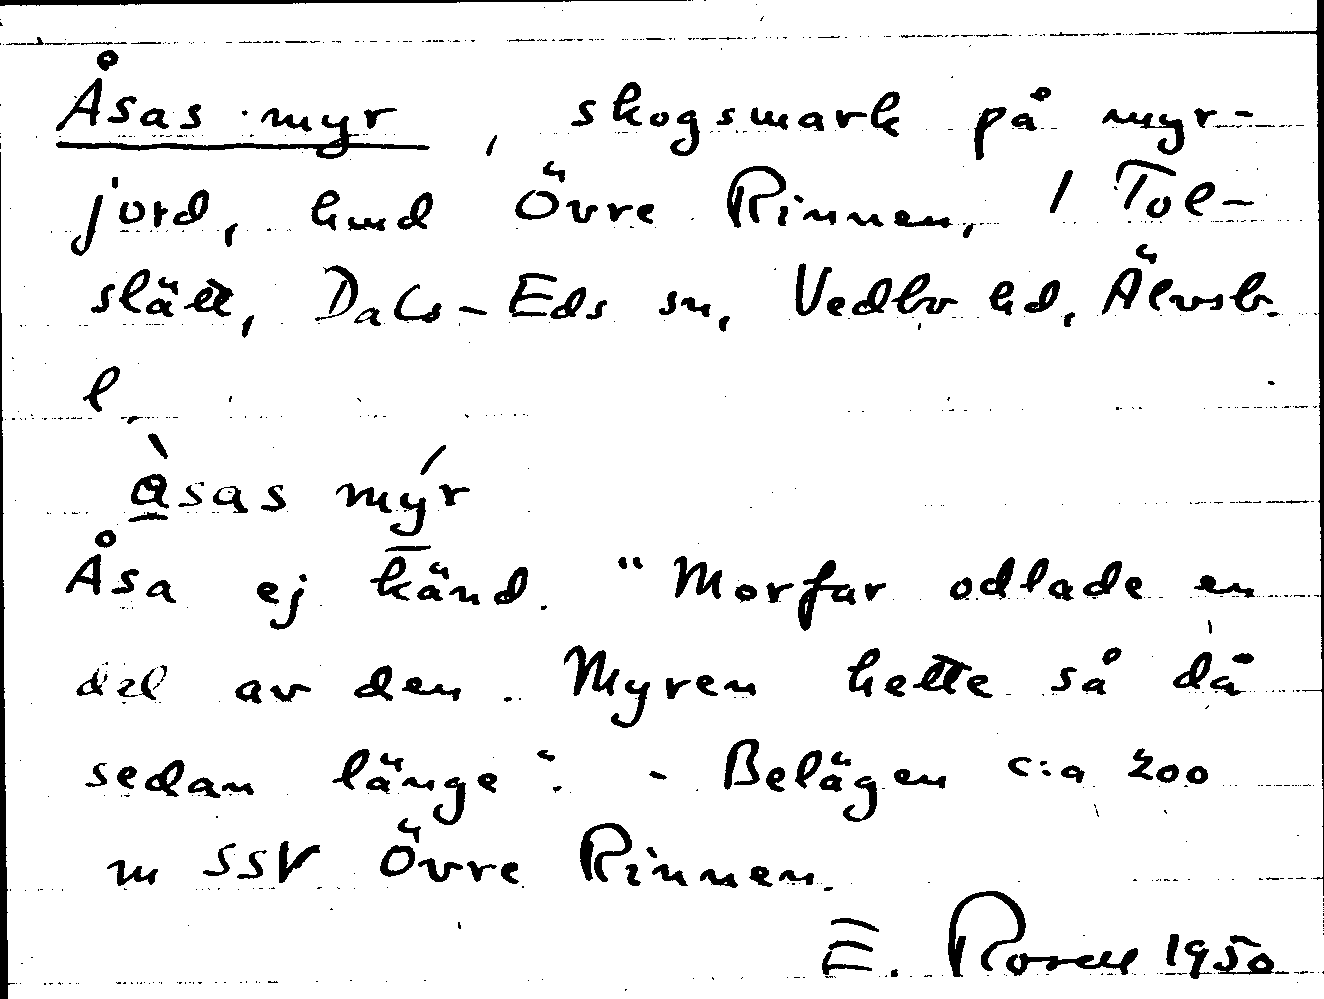 Åsas myr, skogsmark på myr-
jord, hmd Övre Rinnen, 1 Tol-
slätt, Dals-Eds sn, Vedbo hd, Älvsb.
l.
àsas mýr
Åsa ej känd. "Morfar odlade en
del av den. Myren hette så då
sedan länge". - Belägen c:a 200
m SSV Övre Rinnen.
E. Rosell 1950